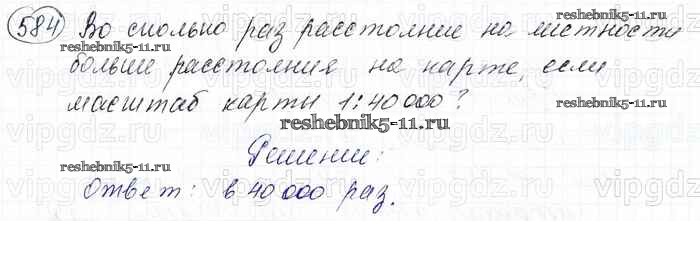 584 Во сколько раз расстояние на местности
reshebnik5-11.ru
больше расстояния на карте, если
масштаб карты 1:40 000?
reshebnik5-11.ru
Решение:
reshebnik5-11.ru reshebnik5-11.ru
Ответ: в 40 000 раз.
vipgdz.ru